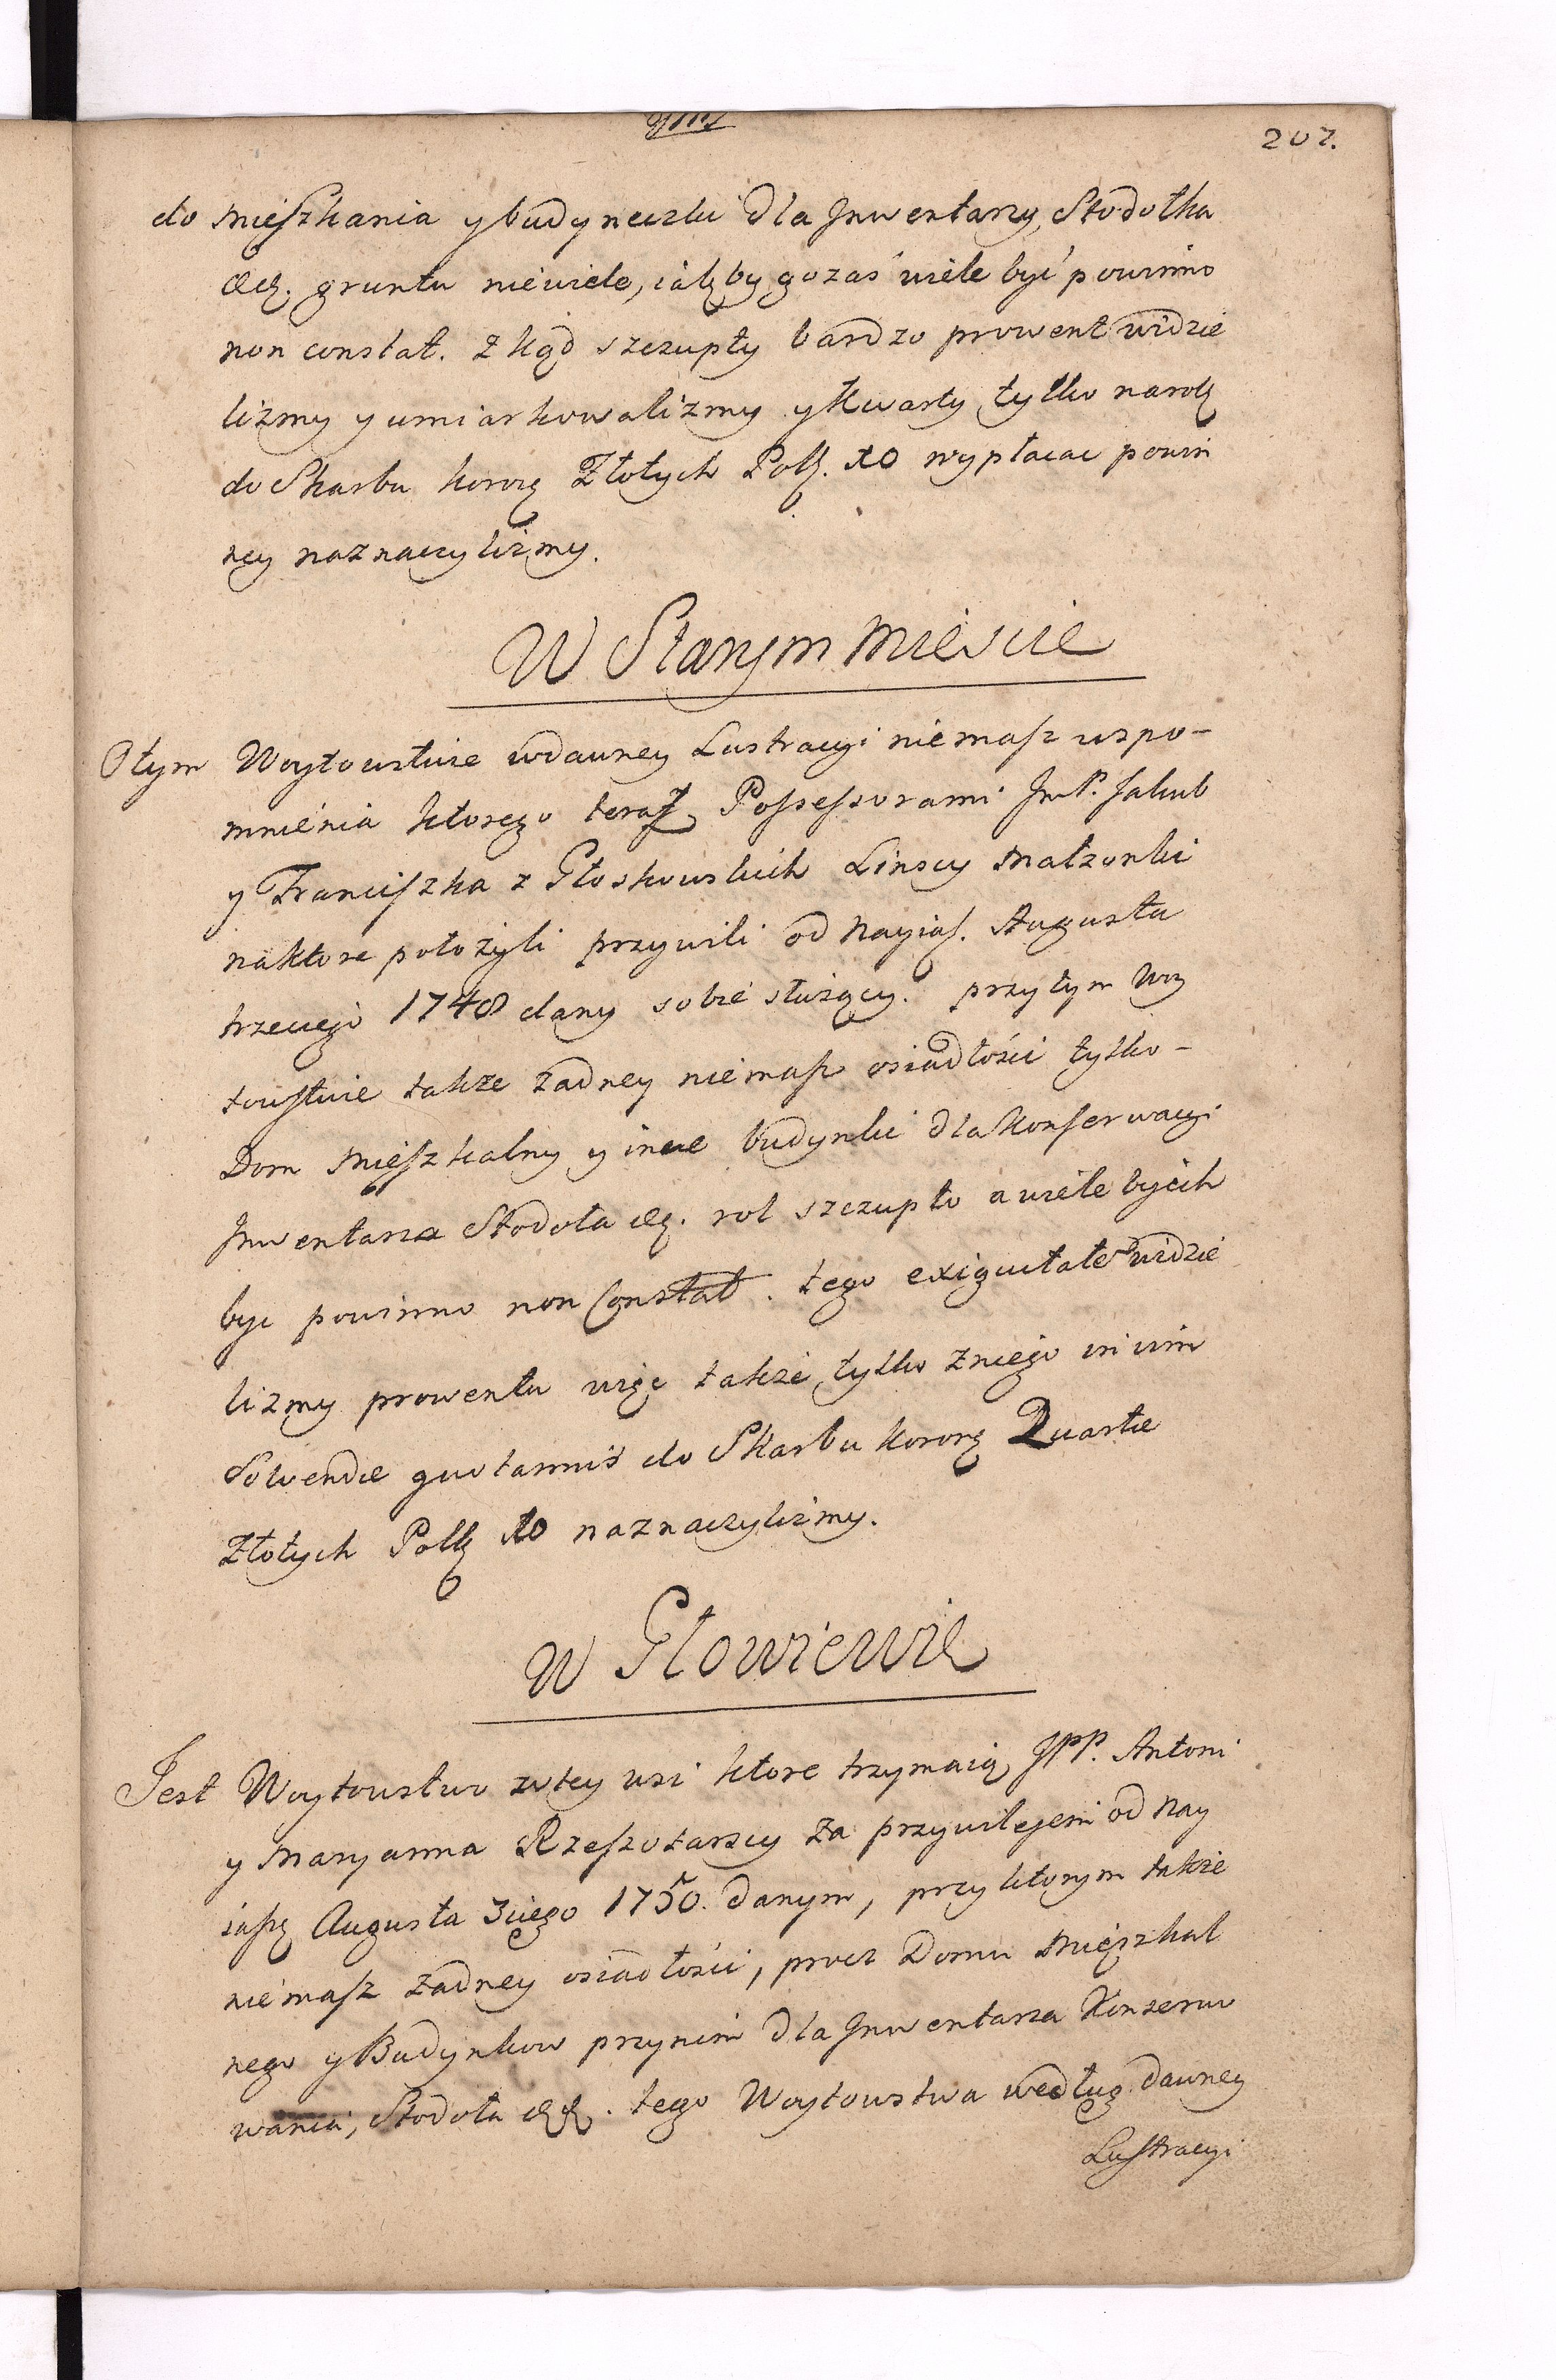 207.
do mieszkania y budyneczki dla Inwentarzy, Stodołka
&c. gruntu niewiele, iak by go zaś wiele być powinno
non constat. Z kąd szczupły bardzo prowent widzie
lizmy y umiarkowalizmy y Kwarty tylko na rok
do Skarbu koron Złotych Polk. 10 wypłacac powin
ney naznaczylizmy.
W Starym mieście
O tym Woytowstwie w dawney Lustracyi nie masz wspo-
mnienia ktorego teraz Possessorami Jmć P. Jakub
y Franciszka z Głoskowskich Linscy Małzonki
na ktore położyli przywili od Nayias. Augusta
trzeciego 1748 dany sobie służący. przy tym Woy
towstwie takze żadney nie masz osiadłości tylko-
Dom mieszkalny y inne budynki dla Konserwacyi
Inwentarza Stodoła &c. rol szczupło a wiele by ich
byc powinno non Constat. tego exiguitate widzie
lizmy prowentu więc takze tylko z niego in vim
Solvendæ quotannis do Skarbu koron Quarte
Złotych Polk 10 naznaczylizmy.
W Głowiewie
Jest Woytowstwo w tey wsi ktore trzymaią JPP. Antoni
y Maryanna Rzeszotarscy za przywilejem od Nay
iasz Augusta 3ciego 1750. danym, przy ktorym takze
nie masz żadney osiadłości, procz Domu mięszkal
nego y Budynkow przy nim dla Inwentarza Konserw
wania, Stodoła &c. tego Woytowstwa według dawney
Lustracyi